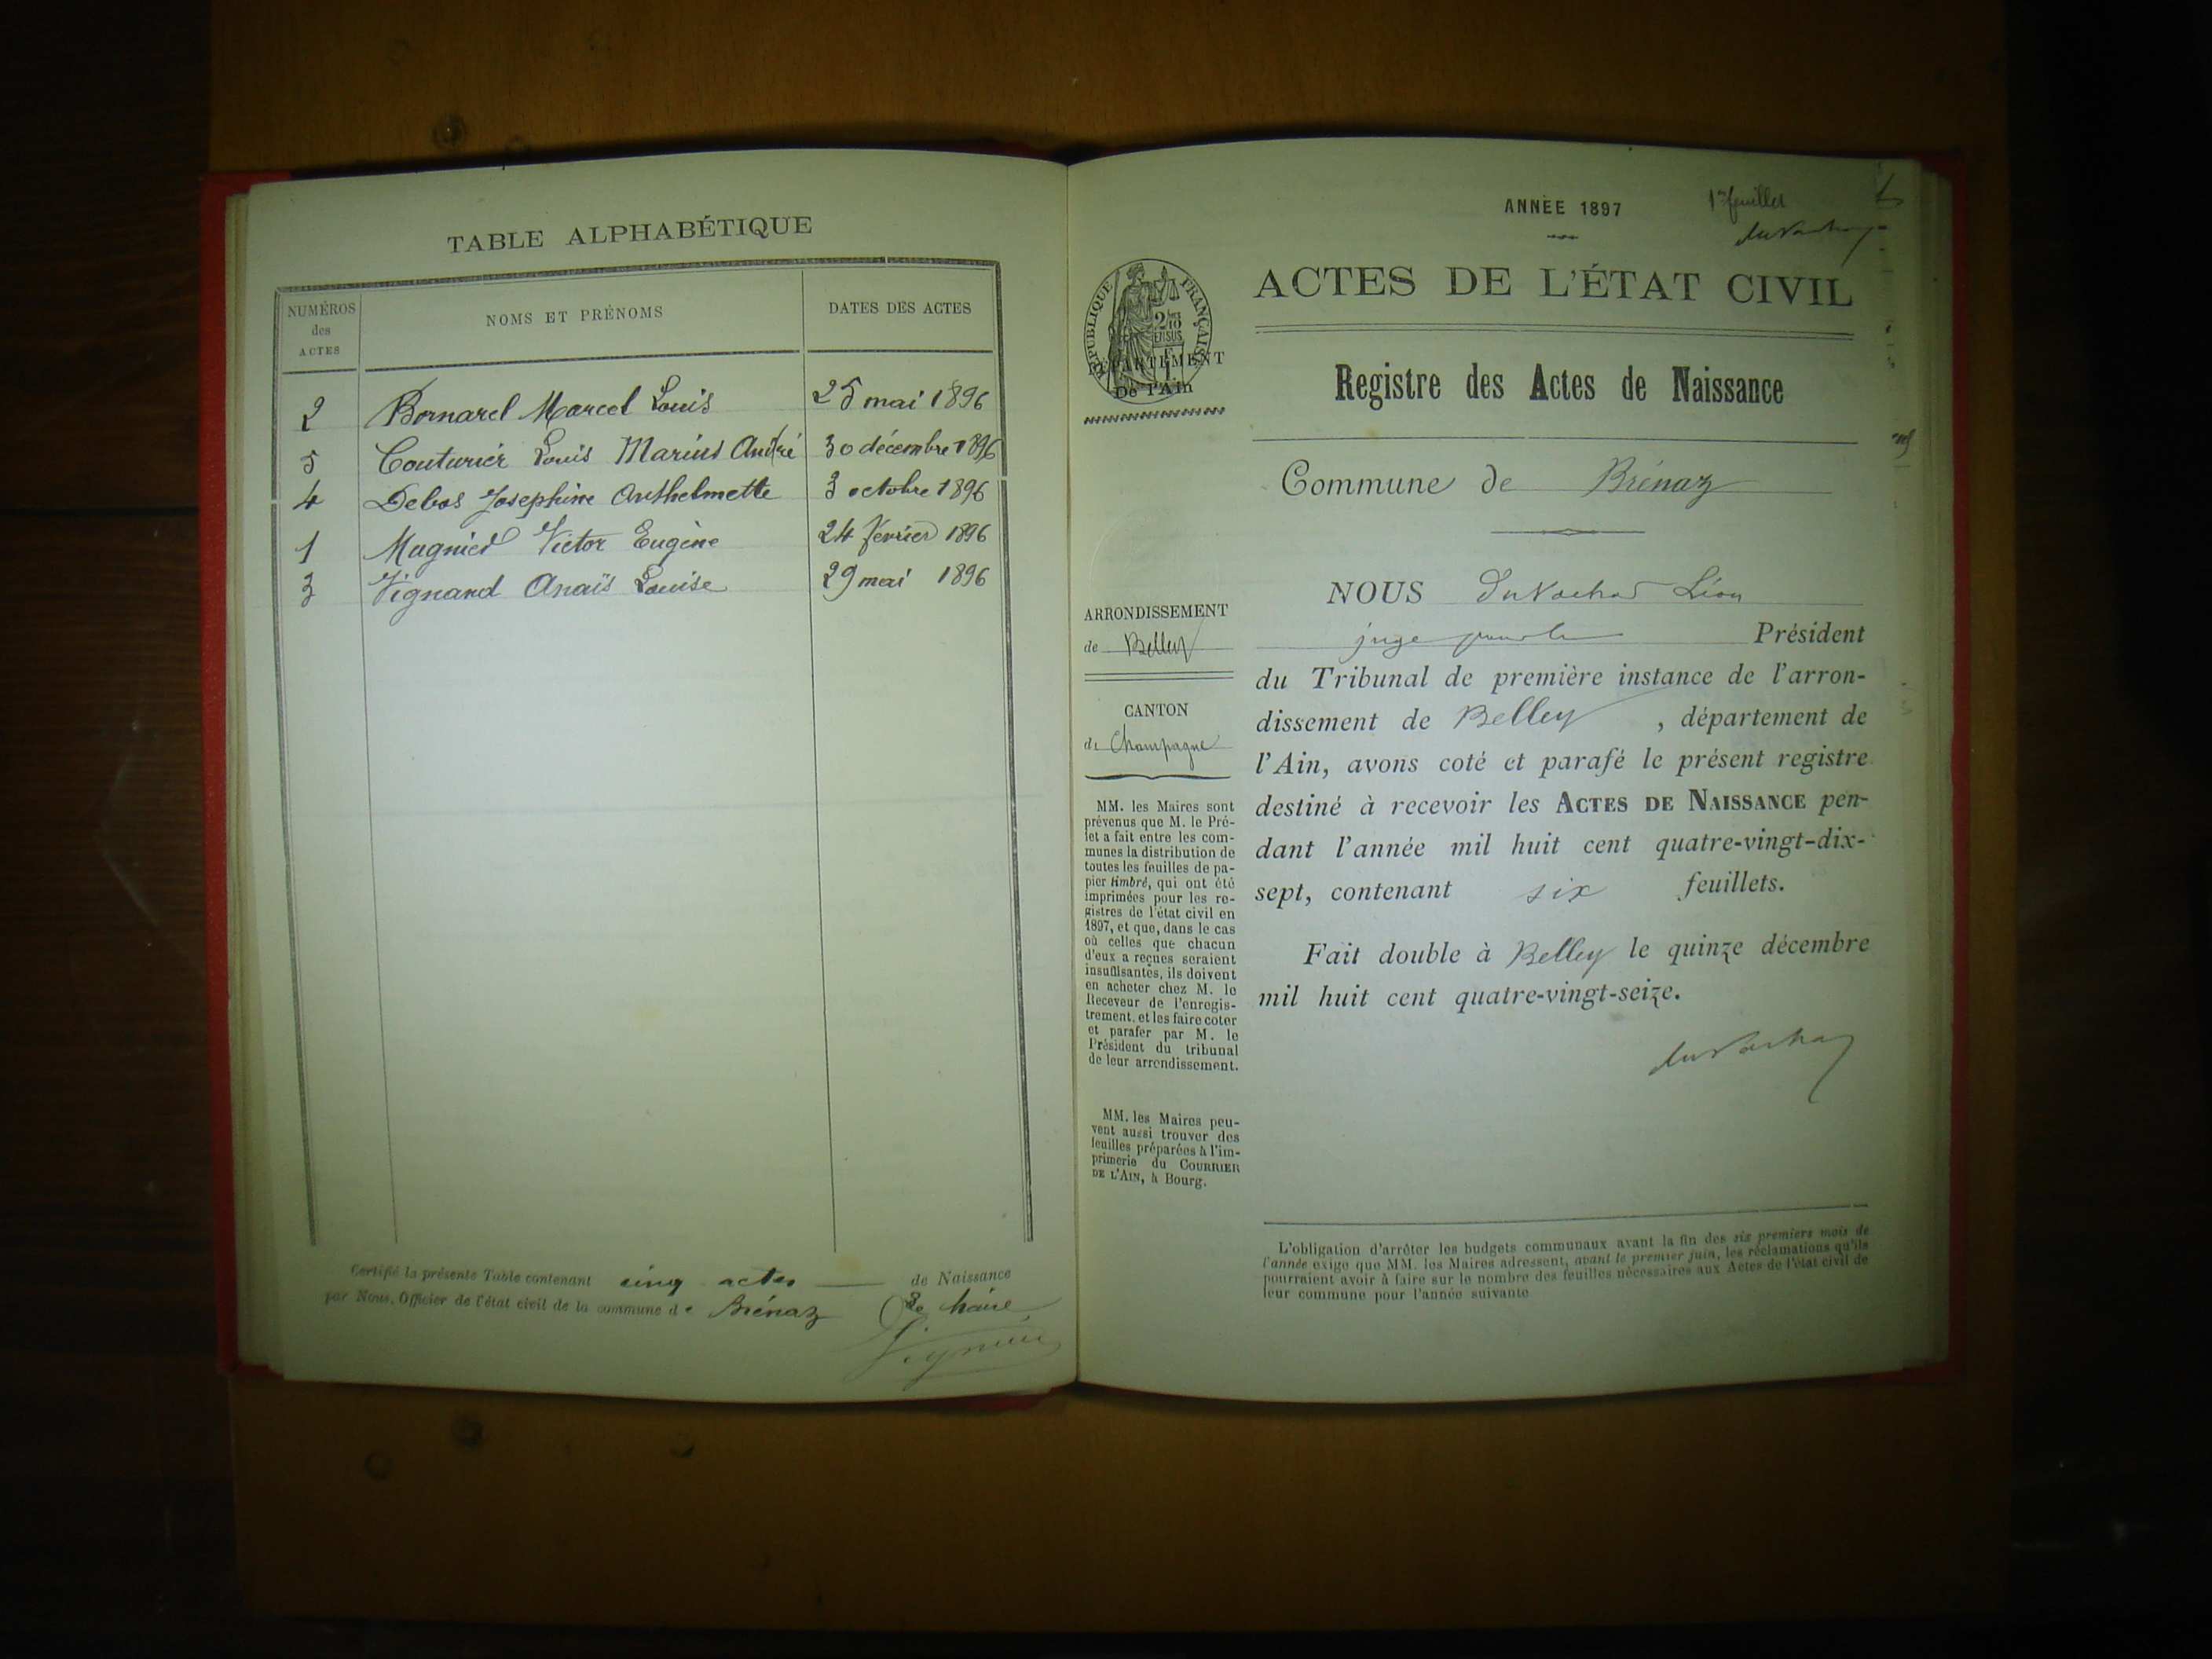 TABLE ALPHABÉTIQUE
NUMÉROS
des
ACTES
NOMS ET PRÉNOMS
DATES DES ACTES
2 Bornarel Marcel Louis 25 mai 1896
5 Couturier Louis Marius André 30 décembre 1896
4 Debos Josephine Anthelmette 3 octobre 1896
1 Magnied Victor Eugène 24 février 1896
3 Vignand Anaïs Louise 29 mai 1896
Certifié la présente Table contenant cinq actes de Naissance
par Nous, Officier de l'état civil de la commune de Brénaz Le Maire
ANNÉE 1897
1er feuillet
ACTES DE L'ÉTAT CIVIL
RÉPUBLIQUE FRANÇAISE
DÉPARTEMENT
De l'Ain
Registre des Actes de Naissance
Commune de Brénaz
ARRONDISSEMENT
de Belley
CANTON
de Champagne
MM. les Maires sont
prévenus que M. le Pré-
fet a fait entre les com-
munes la distribution de
toutes les feuilles de pa-
pier timbré, qui ont été
imprimées pour les re-
gistres de l'état civil en
1897, et que, dans le cas
où celles que chacun
d'eux a reçues seraient
insuffisantes, ils doivent
en acheter chez M. le
Receveur de l'enregis-
trement, et les faire coter
et parafer par M. le
Président du tribunal
de leur arrondissement.
MM. les Maires peu-
vent aussi trouver des
feuilles préparées à l'im-
primerie du COURRIER
DE L'AIN, à Bourg.
NOUS Léon
juge Président
du Tribunal de première instance de l'arron-
dissement de Belley , département de
l'Ain, avons coté et parafé le présent registre
destiné à recevoir les ACTES DE NAISSANCE pen-
dant l'année mil huit cent quatre-vingt-dix-
sept, contenant six feuillets.
Fait double à Belley le quinze décembre
mil huit cent quatre-vingt-seize.
L'obligation d'arrêter les budgets communaux avant la fin des six premiers mois de
l'année exige que MM. les Maires adressent, avant le premier juin, les réclamations qu'ils
pourraient avoir à faire sur le nombre des feuilles nécessaires aux Actes de l'état civil de
leur commune pour l'année suivante